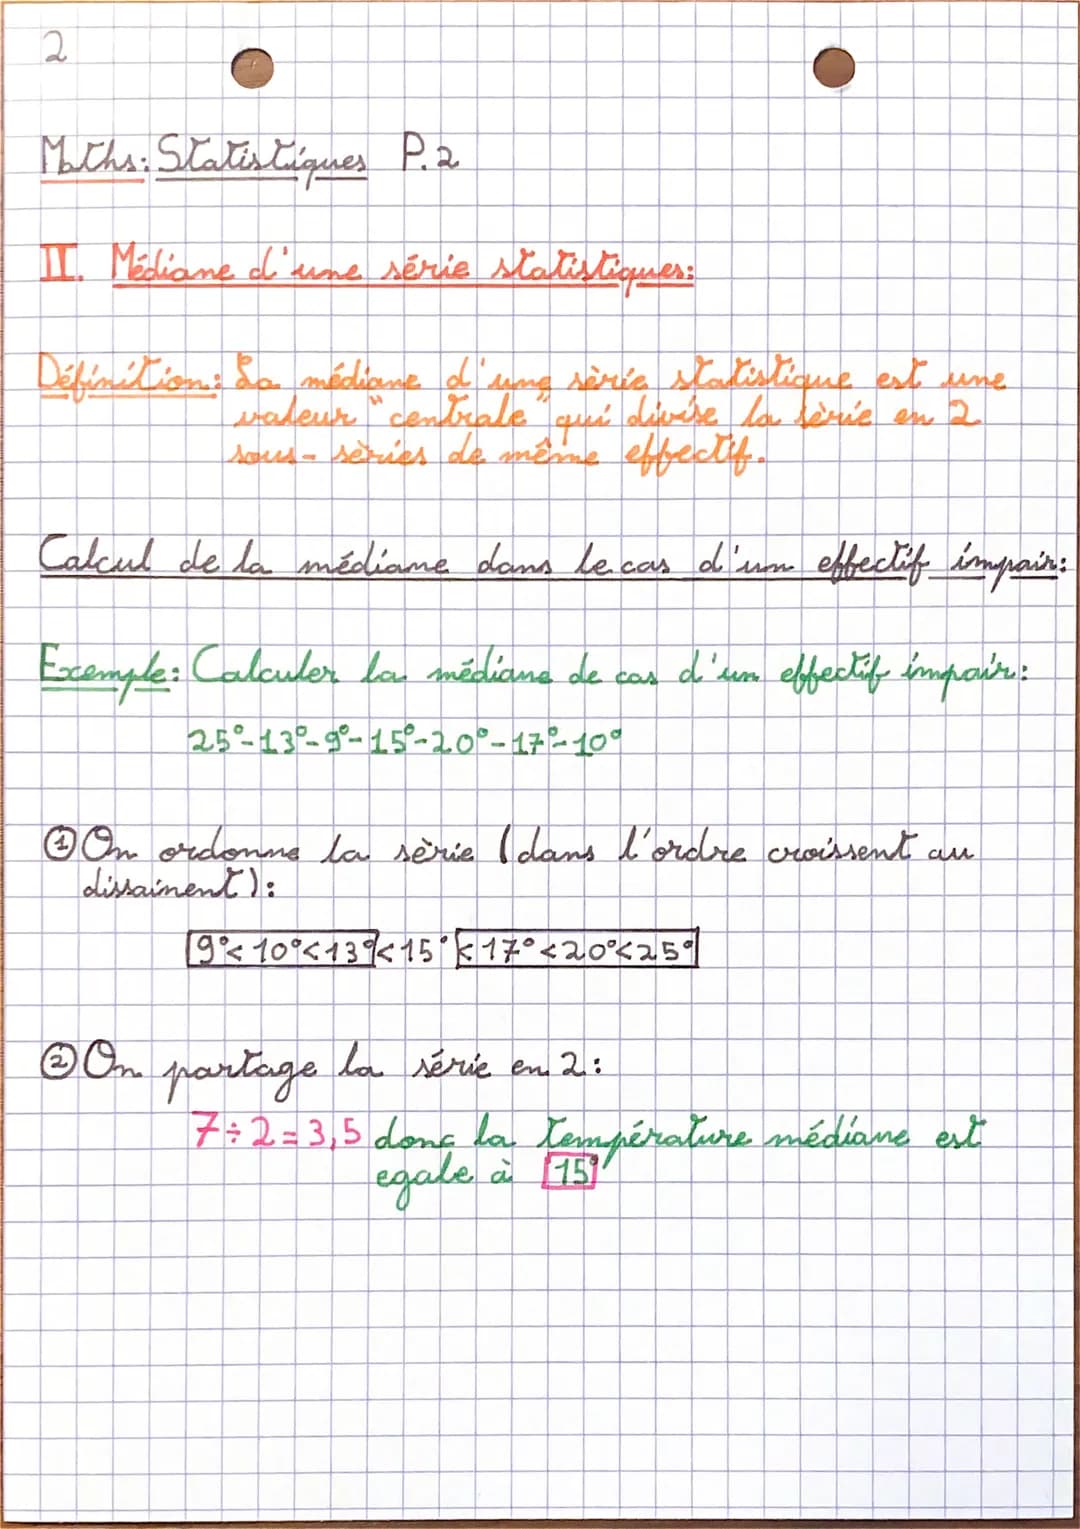 2
Maths: Statistiques P.2
II. Médiane d'une série statistiques:
Définition: La médiane d'une sèrie statistique est une
valeur "centrale" qui divise la sèrie en 2
sous-sèries de même effectif.
Calcul de la médiane dans le cas d'un effectif impair:
Exemple: Calculer la médiane de cas d'un effectif impair:
25°-13°-9°-15°-20°-17°-10°
① On ordonne la sèrie (dans l'ordre croissent au
dissainent):
9°<10°<13°<15°<17°<20°<25°
② On partage la série en 2:
7÷2=3,5 donc la température médiane est
egale à 15°